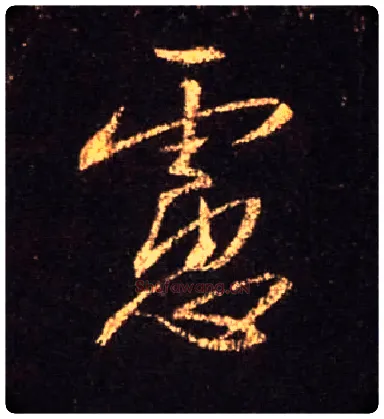 慮
Shufawang.CN